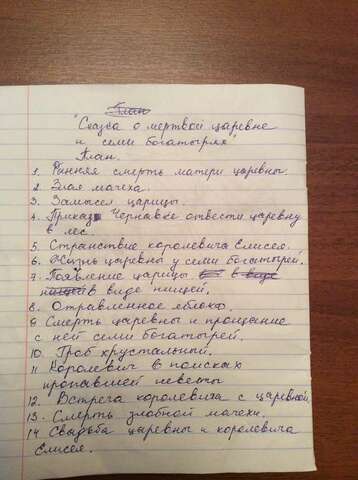 План
"Сказка о мертвой царевне
и семи богатырях"
План.
1. Ранняя смерть матери царевны.
2. Злая мачеха.
3. Замысел царицы.
4. Приказ Чернавке отвести царевну
в лес.
5. Странствие королевича Елисея.
6. Жизнь царевны у семи богатырей.
7. Появление царицы в виде
нищей в виде нищей.
8. Отравленное яблоко.
9 Смерть царевны и прощение
с ней семи богатырей.
10. Гроб хрустальный.
11 Королевич в поисках
пропавшей невесты
12. Встреча королевича с царевной.
13. Смерть злобной мачехи.
14 Свадьба царевны и королевича
Елисея.